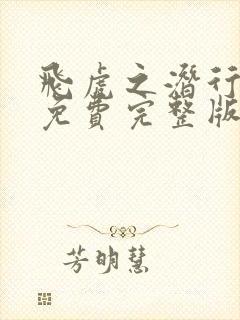 飛虎之潛行
免費完整版
芳明慧